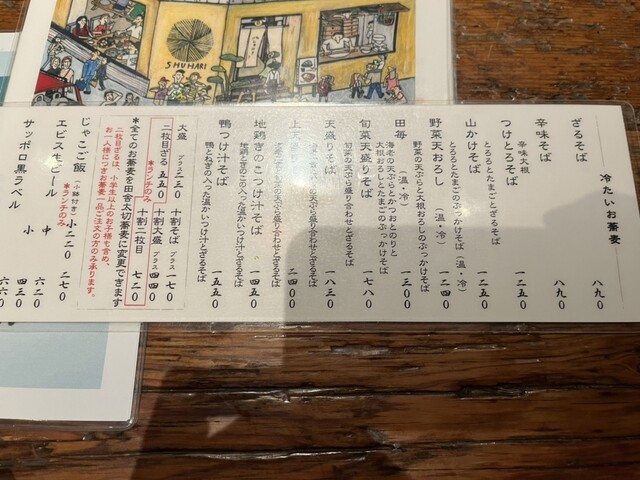 SHUHARI
冷たいお蕎麦
ざるそば 八九〇
辛味そば 八九〇
辛味大根
つけとろそば 一二五〇
とろろとたまごとざるそば
山かけそば (温・冷) 一二五〇
とろろとたまごのぶっかけそば
野菜天おろし (温・冷) 一二四〇
野菜の天ぷらと大根おろしのぶっかけそば
田毎 (温・冷) 一三〇〇
海老の天ぷらとかつおとのりと
大根おろしとたまごのぶっかけそば
旬菜天盛りそば 一七八〇
旬菜の天ぷら盛り合わせとざるそば
天盛りそば 一八三〇
旬菜の天ぷら盛り合わせとざるそば
二四〇〇
天ぷら盛り合わせとざるそば
地鶏きのこつけ汁そば 一四五〇
地鶏ときのこの入った温かいつけ汁とざるそば
鴨つけ汁そば 一五五〇
鴨とねぎの入った温かいつけ汁とざるそば
大盛 プラス一三〇 十割そば プラス一七〇
*ランチのみ
二枚目ざる 五五〇 十割大盛 プラス四四〇
十割二枚目 七二〇
*全てのお蕎麦を田舎太切蕎麦に変更できます
二枚目ざるは、小学生以上のお子様も含め、
お一人様につきお蕎麦一品ご注文の方のみ承ります。
じゃこご飯 (小鉢付き) 小二二〇 二七〇
*ランチのみ
エビス生ビール 中 六二〇
小 四三〇
サッポロ黒ラベル 六六〇